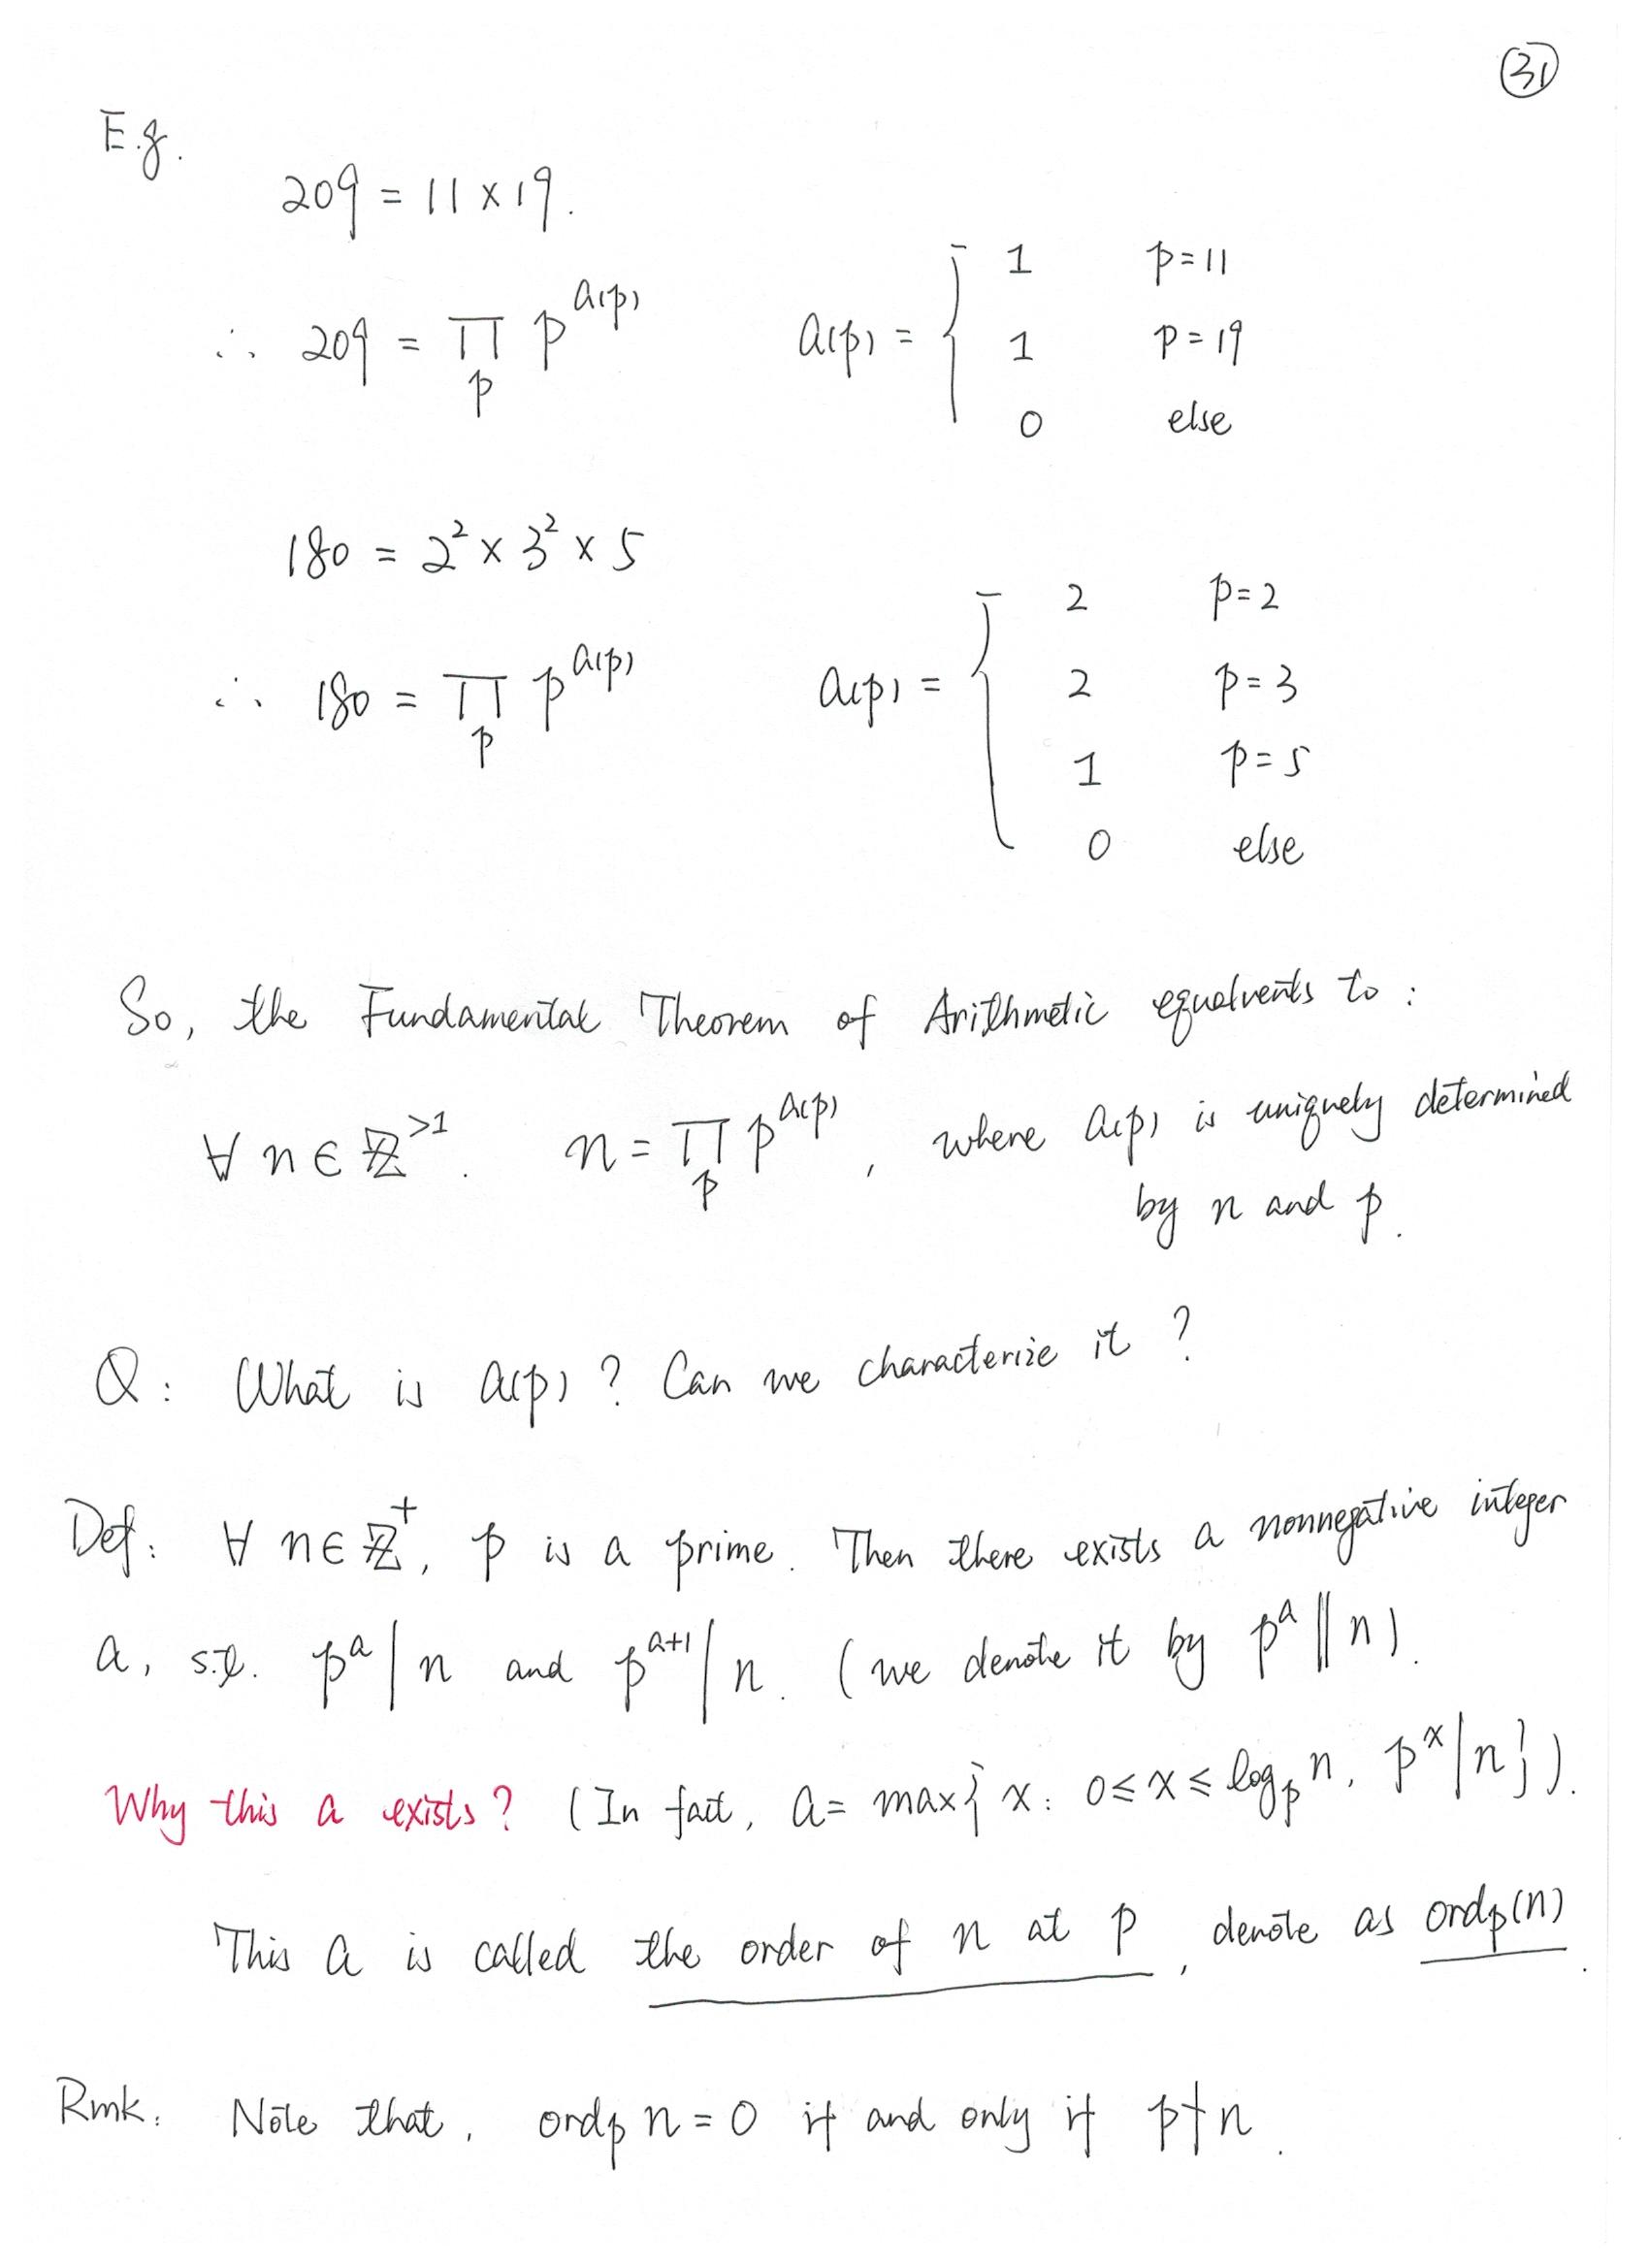 ㉛
E.g.
209 = 11 × 19.
∴ 209 = ∏_p p^{a(p)}    a(p) = { 1  p=11
1  p=19
0  else
180 = 2² × 3² × 5
∴ 180 = ∏_p p^{a(p)}    a(p) = { 2  p=2
2  p=3
1  p=5
0  else
So, the Fundamental Theorem of Arithmetic equalvents to :
∀ n ∈ ℤ^{>1}.  n = ∏_p p^{a(p)}, where a(p) is uniquely determined
by n and p.
Q: What is a(p)? Can we characterize it?
Def: ∀ n ∈ ℤ⁺, p is a prime. Then there exists a nonnegative integer
a, s.t. p^a | n and p^{a+1} | n. (we denote it by p^a ‖ n).
Why this a exists? (In fact, a = max{ x: 0 ≤ x ≤ log_p n, p^x | n }).
This a is called the order of n at p, denote as ord_p(n).
Rmk: Note that, ord_p n = 0 if and only if p ∤ n.